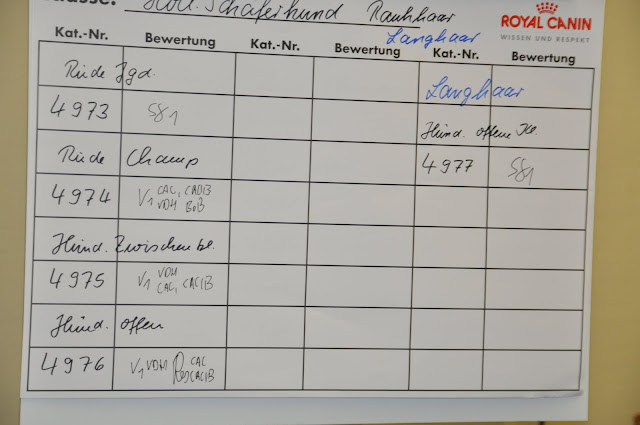 Rasse: Holl. Schäferhund Rauhhaar
Langhaar
ROYAL CANIN
WISSEN UND RESPEKT
Kat.-Nr. Bewertung Kat.-Nr. Bewertung Kat.-Nr. Bewertung
Rüde Jgd.
4973 SG1
Rüde Champ
4974 V1 CAC, CACIB
VDH BoB
Hünd. Zwischenkl.
4975 V1 VDH
CAC, CACIB
Hünd. offen
4976 V1 VDH CAC
ResCACIB
Langhaar
Hünd. offene Kl.
4977 SG1